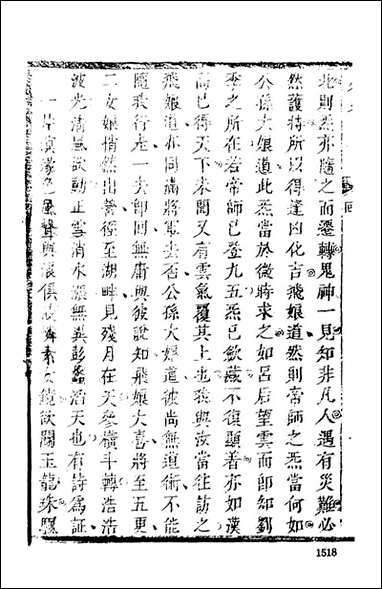 此則炁亦隨之而遷轉鬼神一見知非凡人遇有災難必
然護持所以得逢凶化吉飛娘道然則帝師之炁當何如
公孫大娘道此炁當於微時求之如呂后望雲而即知劉
季之所在若帝師已登九五炁已歛藏不復顯著亦如漢
高已得天下未聞又有雲氣覆其上也我與汝當往訪之
飛娘道亦同滿將軍去否公孫大娘道彼尚無道術不能
隨我行走一去即回無庸與彼說知飛娘大喜將至五更
二女娘悄然出營徑至湖畔見殘月在天參橫斗轉浩浩
波光清風欲動正雪消水漲無異彭蠡浩天也有詩爲證
一片 色 聲與浪俱 鏡飲關玉龍珠
1518